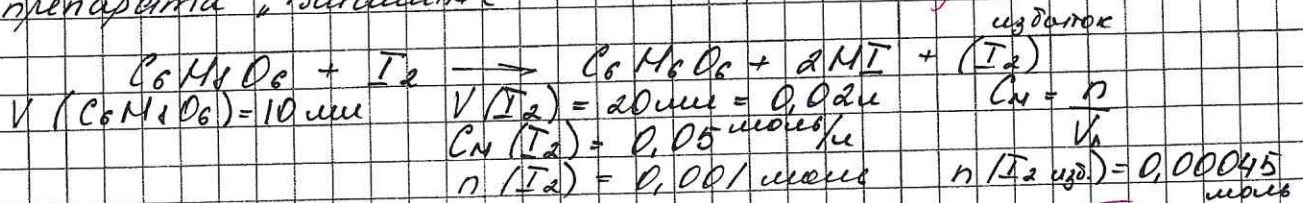 препарата „
избыток
C₆H₈O₆ + I₂ → C₆H₆O₆ + 2HI + (I₂)
V (C₆H₈O₆) = 10 мл V (I₂) = 20 мл = 0,02 л Cм = n / Vл
Cм (I₂) = 0,05 моль/л
n (I₂) = 0,001 моль n (I₂ изб.) = 0,00045 моль